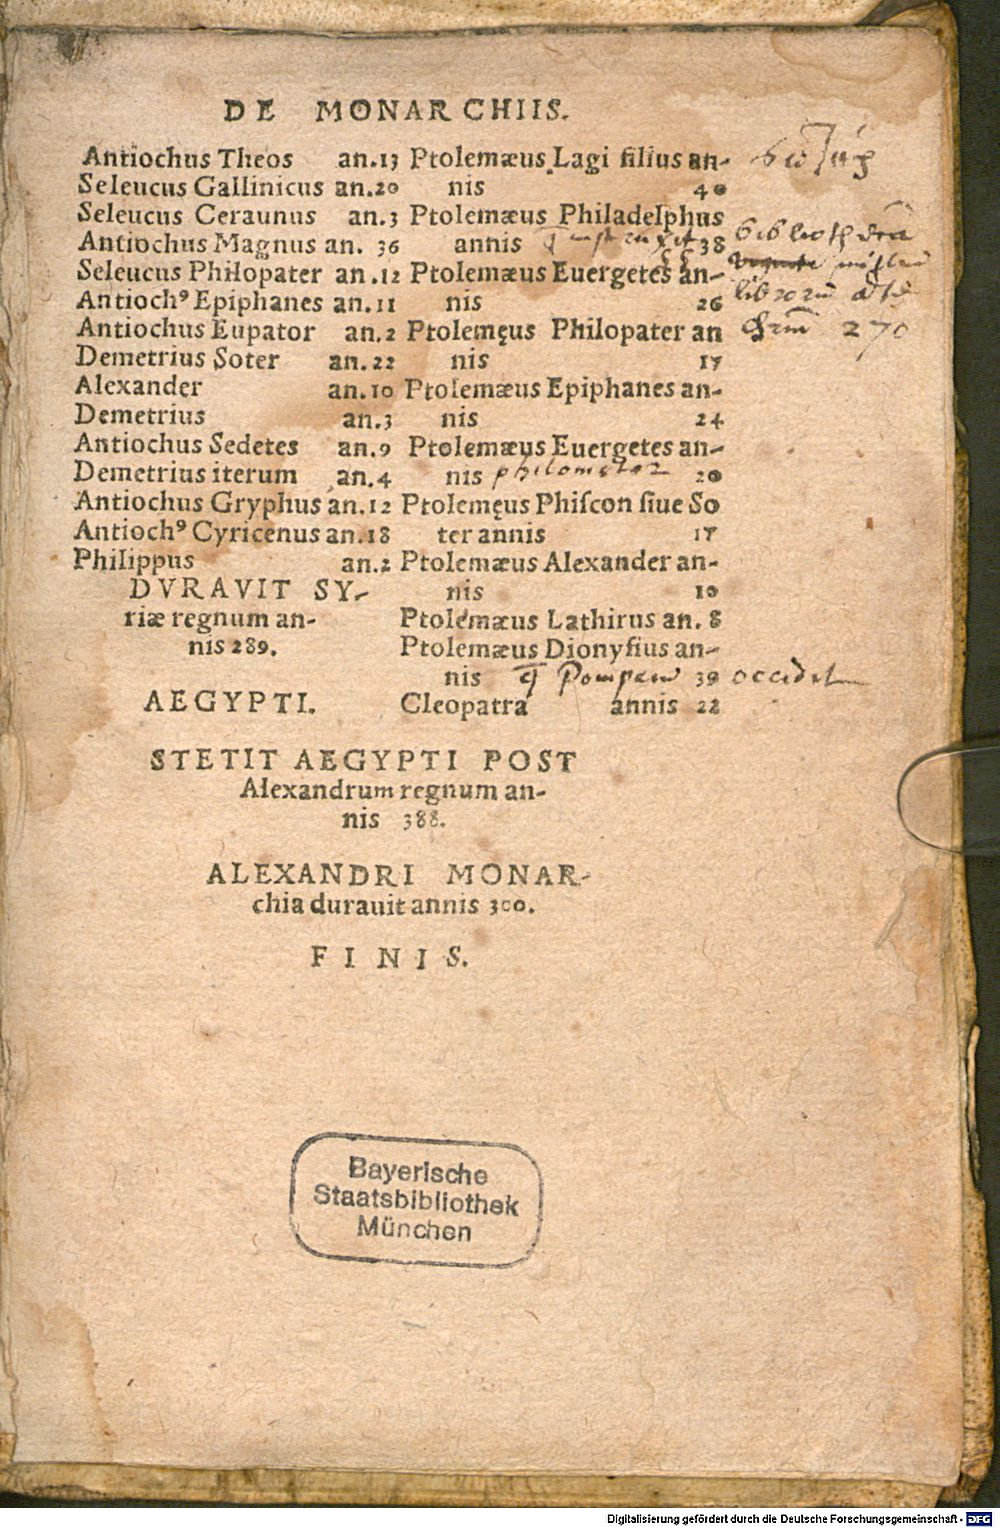 DE MONARCHIIS.
Antiochus Theos an.13
Seleucus Gallinicus an.20
Seleucus Ceraunus an.3
Antiochus Magnus an. 36
Seleucus Philopater an.12
Antiochꝰ Epiphanes an.11
Antiochus Eupator an.2
Demetrius Soter an.22
Alexander an.10
Demetrius an.3
Antiochus Sedetes an.9
Demetrius iterum an.4
Antiochus Gryphus an.12
Antiochꝰ Cyricenus an.18
Philippus an.2
DVRAVIT SY-
riæ regnum an-
nis 289.
AEGYPTI.
Ptolemæus Lagi filius an-
nis 40
Ptolemæus Philadelphus
annis 38
Ptolemæus Euergetes an-
nis 26
Ptolemęus Philopater an
nis 17
Ptolemæus Epiphanes an-
nis 24
Ptolemæus Euergetes an-
nis philometor 20
Ptolemęus Phiſcon ſiue So
ter annis 17
Ptolemæus Alexander an-
nis 10
Ptolemæus Lathirus an. 8
Ptolemæus Dionyſius an-
nis q̄ Pompeiū 30 occidit
Cleopatra annis 22
σωτὴρ
librorū
Chrm̄ 270
STETIT AEGYPTI POST
Alexandrum regnum an-
nis 388.
ALEXANDRI MONAR-
chia durauit annis 300.
FINIS.
Bayerische
Staatsbibliothek
München
Digitalisierung gefördert durch die Deutsche Forschungsgemeinschaft - DFG